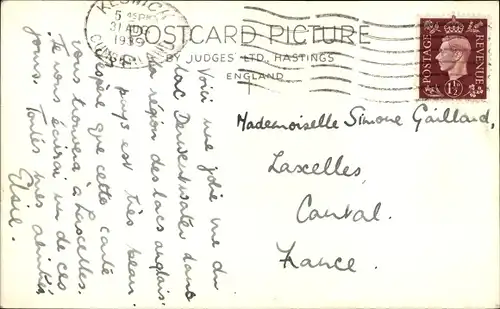 KESWICK
5 45 PM
31 AUG
1939
CUMBERLAND
POSTCARD PICTURE
BY JUDGES' LTD., HASTINGS
ENGLAND
POSTAGE
REVENUE
1½
Mademoiselle Simone Gaillard,
Lascelles,
Cantal.
France.
Voici une jolie vue du
lac Derwentwater dans
la région des lacs anglais.
Le pays est très beau.
J'espère que cette carte
vous trouvera à Lascelles.
Je vous écrirai un de ces
jours. Toutes mes amitiés
Elsie.